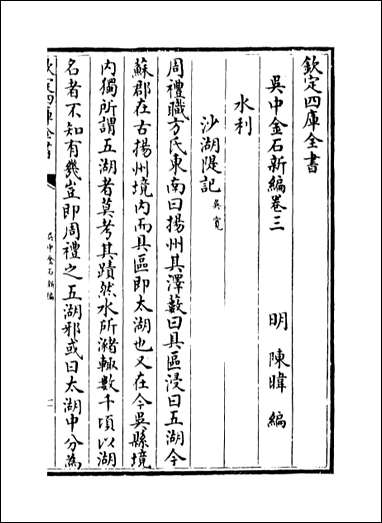 欽定四庫全書
吳中金石新編卷三
明 陳暐 編
水利
沙湖隄記 吳寛
周禮職方氏東南曰揚州其澤藪曰具區浸曰五湖今
蘇郡在古揚州境内而具區即太湖也又在今吳縣境
内獨所謂五湖者莫考其蹟然水所瀦輙數千頃以湖
名者不知有幾豈即周禮之五湖邪或曰太湖中分為
欽定四庫全書
吳中金石新編